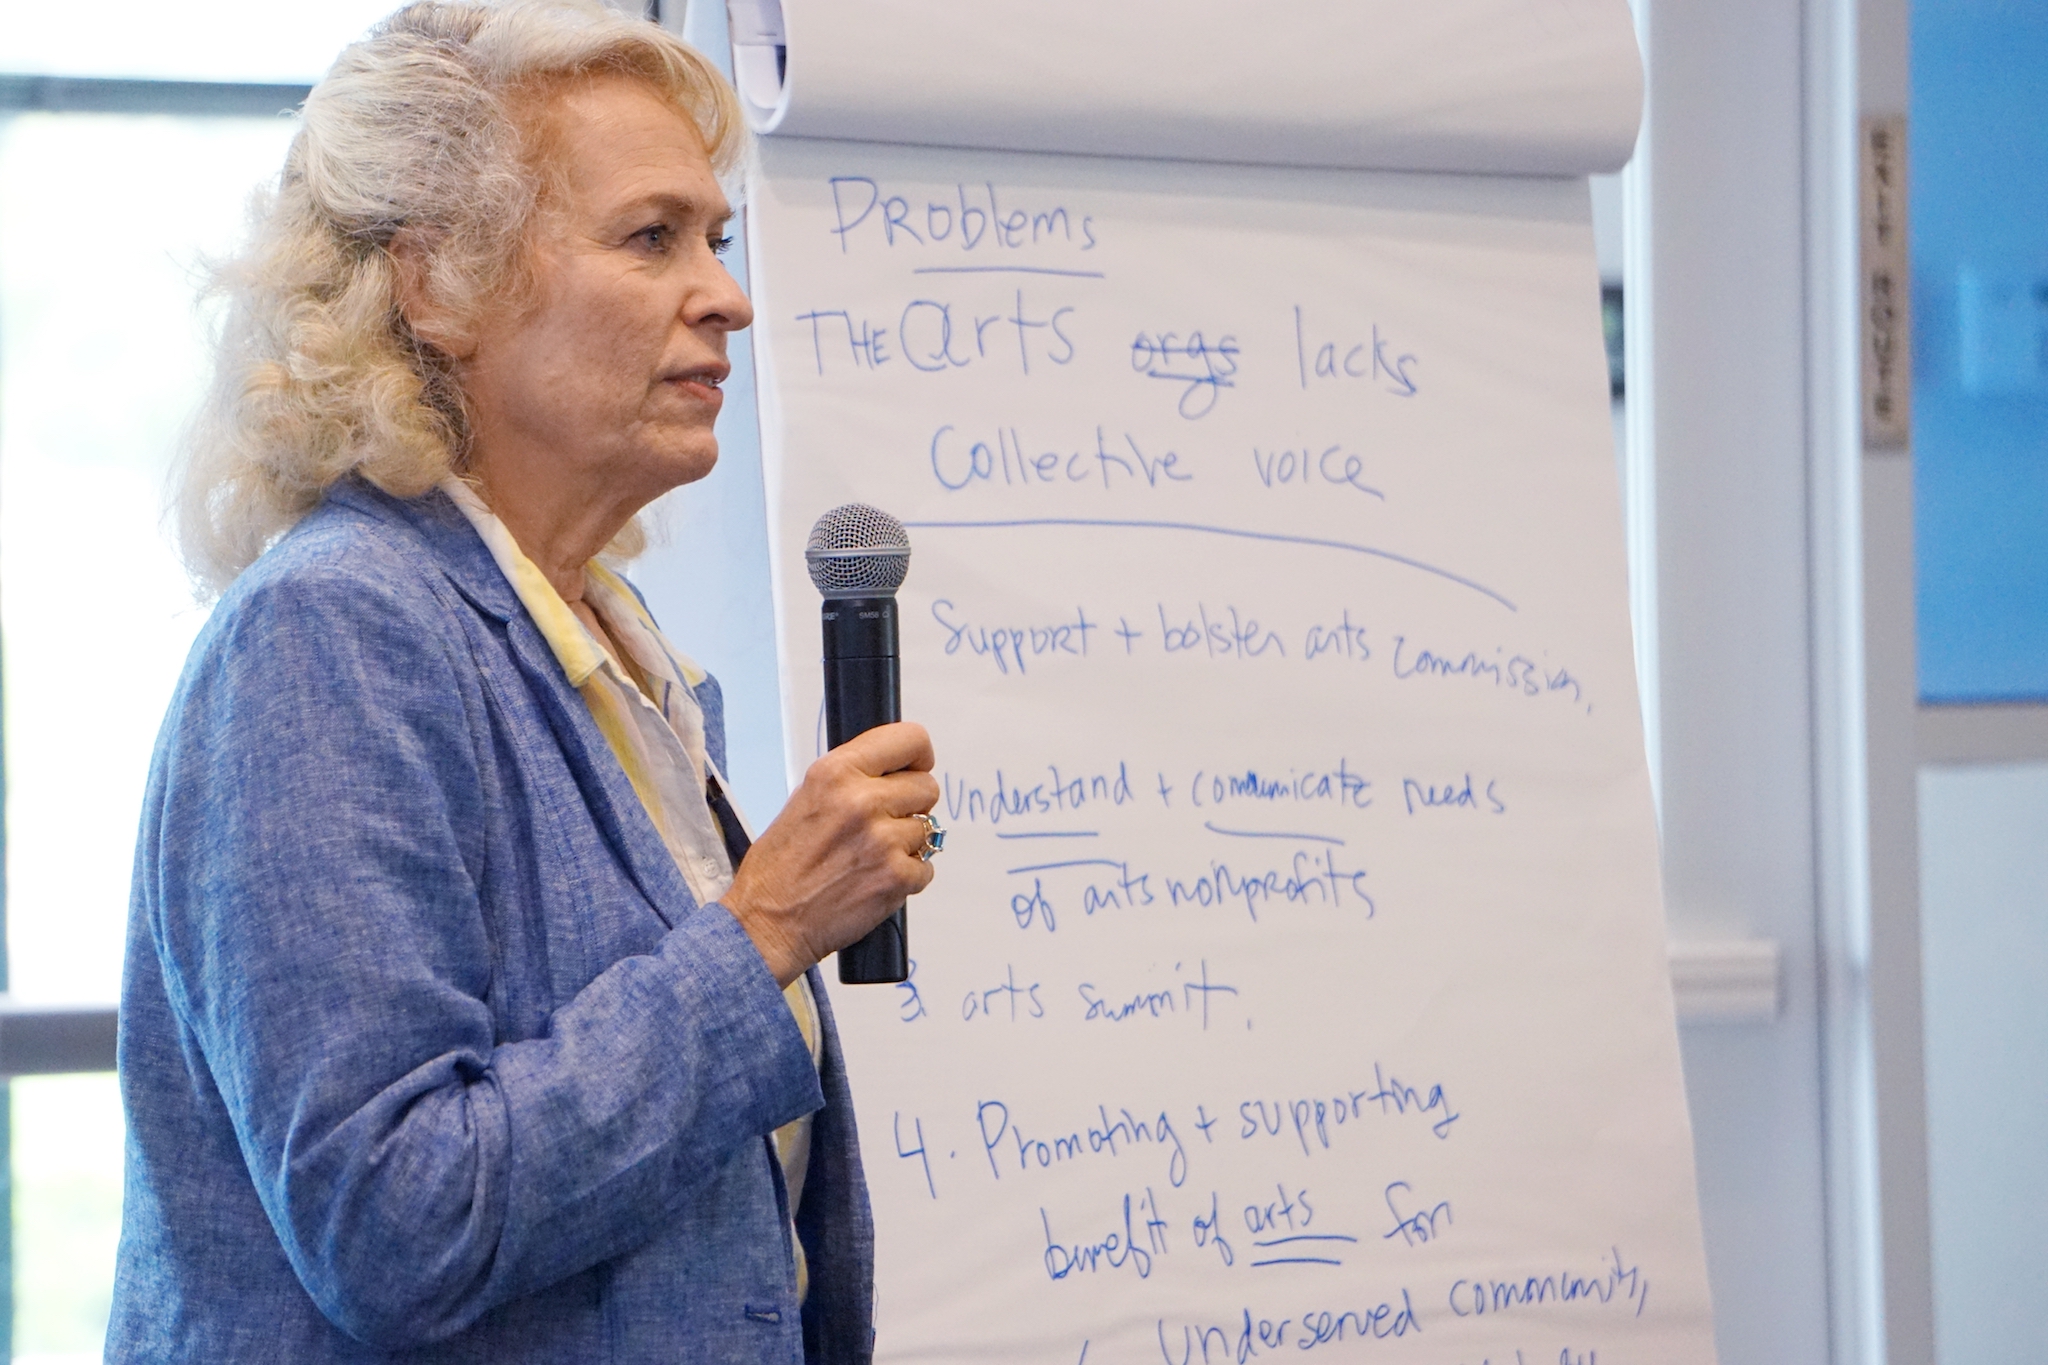 Problems
THE arts orgs lacks
Collective voice
Support + bolster arts commission,
Understand + communicate needs
of arts nonprofits
3 arts summit.
4. Promoting + supporting
benefit of arts for
underserved community,
SM58